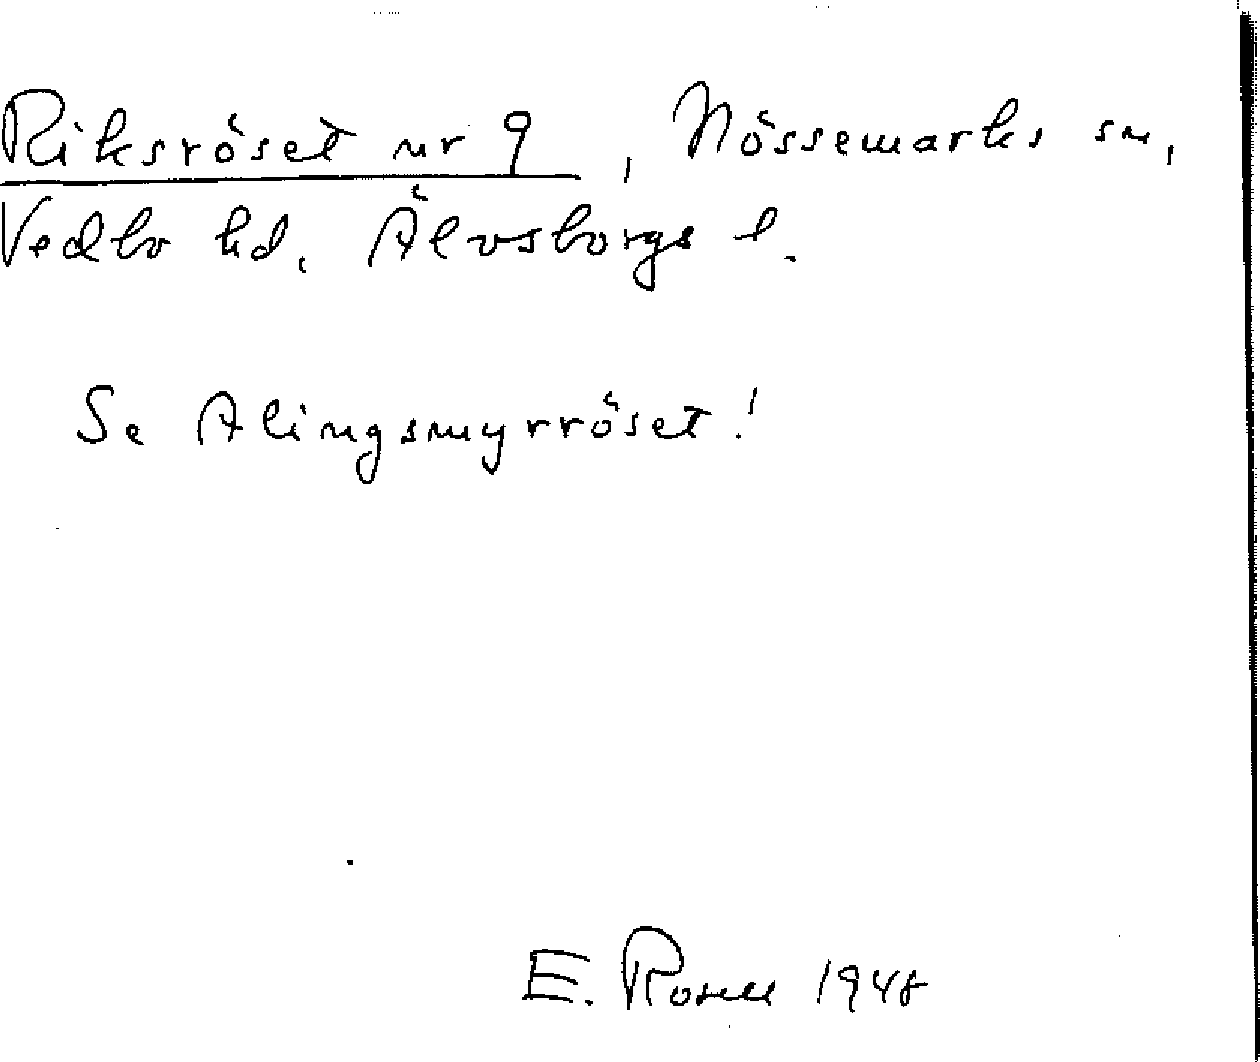 Riksröset nr 9, Nössemarks sn,
Vedbo hd. Älvsborgs l.
Se Alingsmyrröset!
E. Rosell 1948